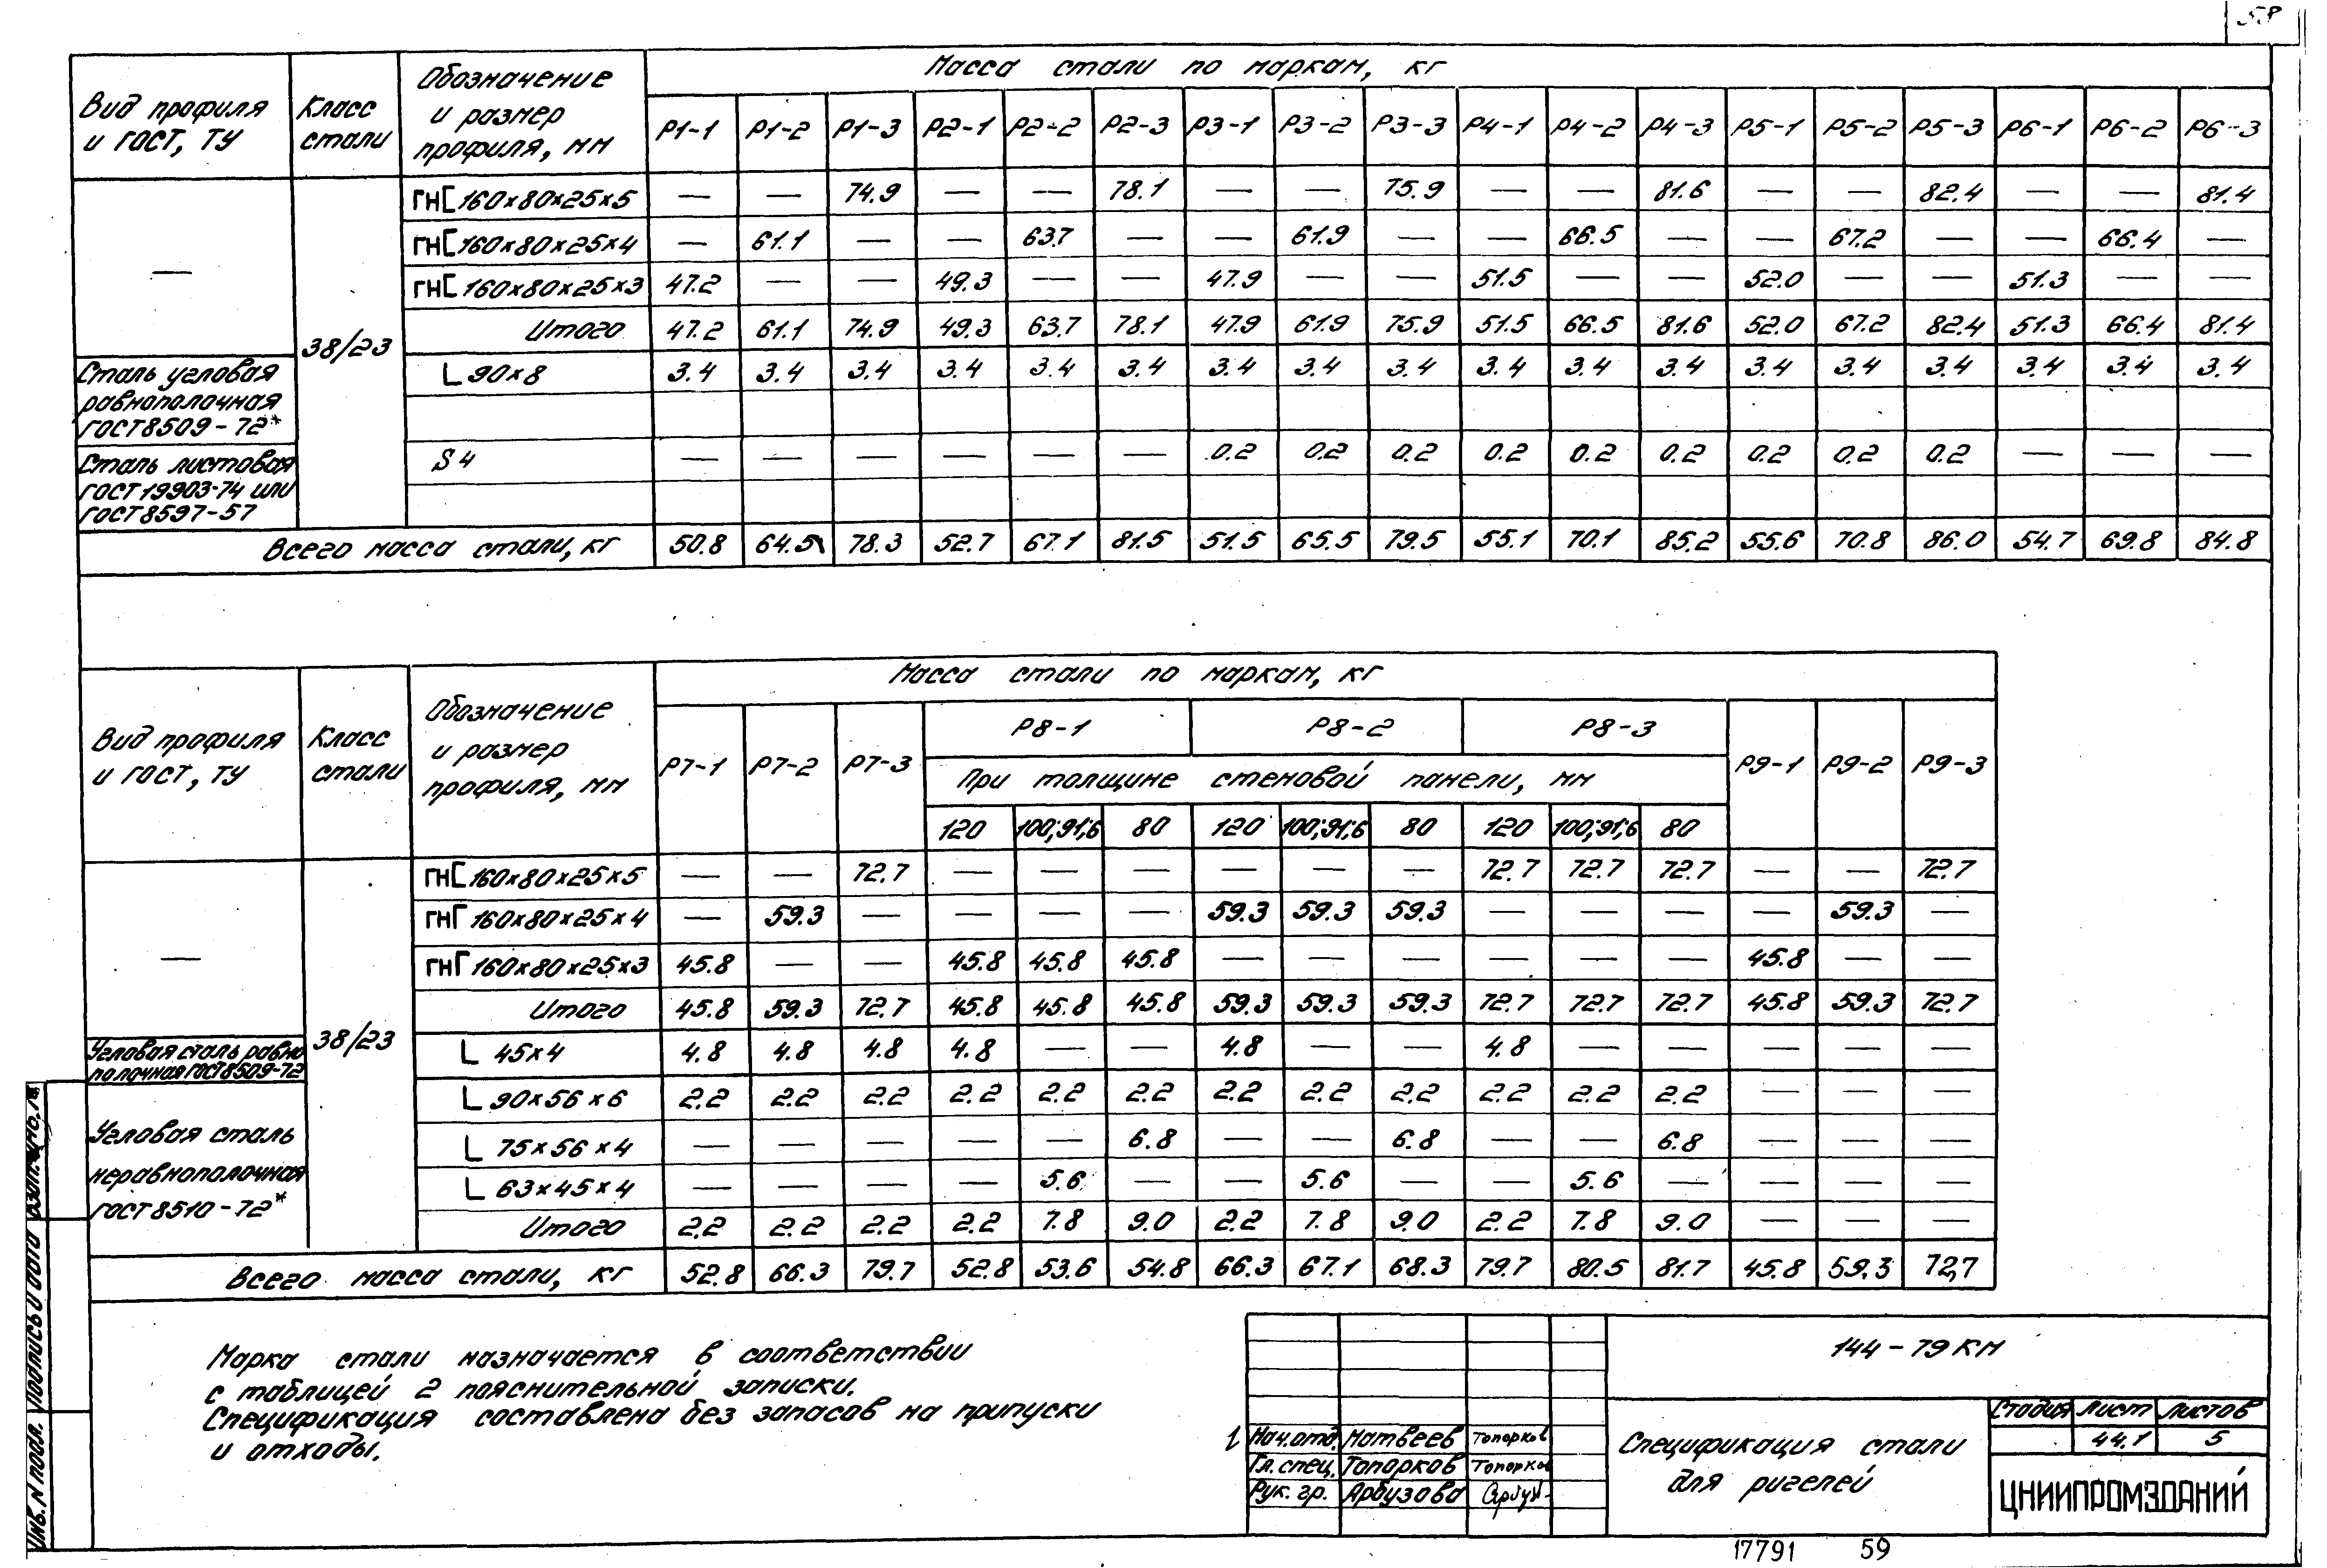 58
Вид профиля и ГОСТ, ТУ | Класс стали | Обозначение и размер профиля, мм | Масса стали по маркам, кг
Р1-1 | Р1-2 | Р1-3 | Р2-1 | Р2-2 | Р2-3 | Р3-1 | Р3-2 | Р3-3 | Р4-1 | Р4-2 | Р4-3 | Р5-1 | Р5-2 | Р5-3 | Р6-1 | Р6-2 | Р6-3
— | 38/23 | ГН[160×80×25×5 | — | — | 74.9 | — | — | 78.1 | — | — | 75.9 | — | — | 81.6 | — | — | 82.4 | — | — | 81.4
ГН[160×80×25×4 | — | 61.1 | — | — | 63.7 | — | — | 61.9 | — | — | 66.5 | — | — | 67.2 | — | — | 66.4 | —
ГН[160×80×25×3 | 47.2 | — | — | 49.3 | — | — | 47.9 | — | — | 51.5 | — | — | 52.0 | — | — | 51.3 | — | —
Итого | 47.2 | 61.1 | 74.9 | 49.3 | 63.7 | 78.1 | 47.9 | 61.9 | 75.9 | 51.5 | 66.5 | 81.6 | 52.0 | 67.2 | 82.4 | 51.3 | 66.4 | 81.4
Сталь угловая
равнополочная
ГОСТ8509-72*
L 90×8 | 3.4 | 3.4 | 3.4 | 3.4 | 3.4 | 3.4 | 3.4 | 3.4 | 3.4 | 3.4 | 3.4 | 3.4 | 3.4 | 3.4 | 3.4 | 3.4 | 3.4 | 3.4
Сталь листовая
ГОСТ19903-74 или
ГОСТ8597-57
S4 | — | — | — | — | — | — | 0.2 | 0.2 | 0.2 | 0.2 | 0.2 | 0.2 | 0.2 | 0.2 | 0.2 | — | — | —
Всего масса стали, кг | 50.8 | 64.5 | 78.3 | 52.7 | 67.1 | 81.5 | 51.5 | 65.5 | 79.5 | 55.1 | 70.1 | 85.2 | 55.6 | 70.8 | 86.0 | 54.7 | 69.8 | 84.8
Вид профиля и ГОСТ, ТУ | Класс стали | Обозначение и размер профиля, мм | Масса стали по маркам, кг
Р7-1 | Р7-2 | Р7-3 | Р8-1 | Р8-2 | Р8-3 | Р9-1 | Р9-2 | Р9-3
При толщине стеновой панели, мм
120 | 100;91;6 | 80 | 120 | 100;91;6 | 80 | 120 | 100;91;6 | 80
— | 38/23 | ГН[160×80×25×5 | — | — | 72.7 | — | — | — | — | — | — | 72.7 | 72.7 | 72.7 | — | — | 72.7
ГНГ 160×80×25×4 | — | 59.3 | — | — | — | — | 59.3 | 59.3 | 59.3 | — | — | — | — | 59.3 | —
ГНГ 160×80×25×3 | 45.8 | — | — | 45.8 | 45.8 | 45.8 | — | — | — | — | — | — | 45.8 | — | —
Итого | 45.8 | 59.3 | 72.7 | 45.8 | 45.8 | 45.8 | 59.3 | 59.3 | 59.3 | 72.7 | 72.7 | 72.7 | 45.8 | 59.3 | 72.7
Угловая сталь равно
полочная ГОСТ8509-72
L 45×4 | 4.8 | 4.8 | 4.8 | 4.8 | — | — | 4.8 | — | — | 4.8 | — | — | — | — | —
Угловая сталь
неравнополочная
ГОСТ8510-72*
L 90×56×6 | 2.2 | 2.2 | 2.2 | 2.2 | 2.2 | 2.2 | 2.2 | 2.2 | 2.2 | 2.2 | 2.2 | 2.2 | — | — | —
L 75×56×4 | — | — | — | — | — | 6.8 | — | — | 6.8 | — | — | 6.8 | — | — | —
L 63×45×4 | — | — | — | — | 5.6 | — | — | 5.6 | — | — | 5.6 | — | — | — | —
Итого | 2.2 | 2.2 | 2.2 | 2.2 | 7.8 | 9.0 | 2.2 | 7.8 | 9.0 | 2.2 | 7.8 | 9.0 | — | — | —
Всего масса стали, кг | 52.8 | 66.3 | 79.7 | 52.8 | 53.6 | 54.8 | 66.3 | 67.1 | 68.3 | 79.7 | 80.5 | 81.7 | 45.8 | 59.3 | 72,7
Марка стали назначается в соответствии
с таблицей 2 пояснительной записки.
Спецификация составлена без запасов на припуски
и отходы.
144-79КМ
Нач.отд. Матвеев Топорков
Гл.спец. Топорков Топорков
Рук. гр. Арбузова
Спецификация стали
для ригелей
Стадия Лист Листов
44.1 5
ЦНИИПРОМЗДАНИЙ
Инв.№подл. Подпись и дата Взам.инв.№
17791 59